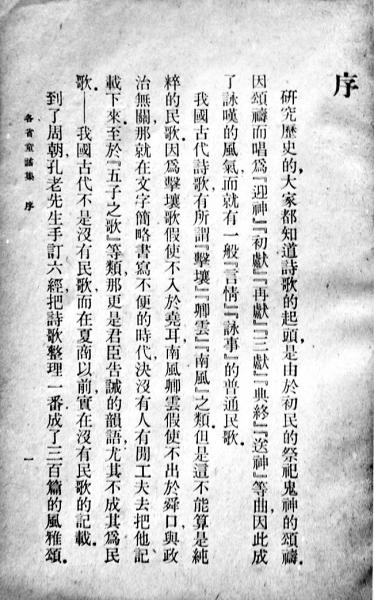 序
研究歷史的，大家都知道詩歌的起頭，是由於初民的祭祀鬼神的頌禱。
因頌禱而唱爲『迎神』『初獻』『再獻』『三獻』『典終』『送神』等曲，因此成
了詠嘆的風氣，而就有一般『言情』『詠事』的普通民歌。
我國古代詩歌有所謂『擊壤』『卿雲』『南風』之類，但是這不能算是純
粹的民歌。因爲擊壤歌假使不入於堯耳，南風卿雲假使不出於舜口，與政
治無關，那就在文字簡略書寫不便的時代，決沒有人有閒工夫去把他記
載下來。至於『五子之歌』等類，那更是君臣告誡的韻語，尤其不成其爲民
歌——我國古代不是沒有民歌，而在夏商以前，實在沒有民歌的記載。
到了周朝孔老先生手訂六經，把詩歌整理一番，成了三百篇的風雅頌。
各省童謠集 序
一